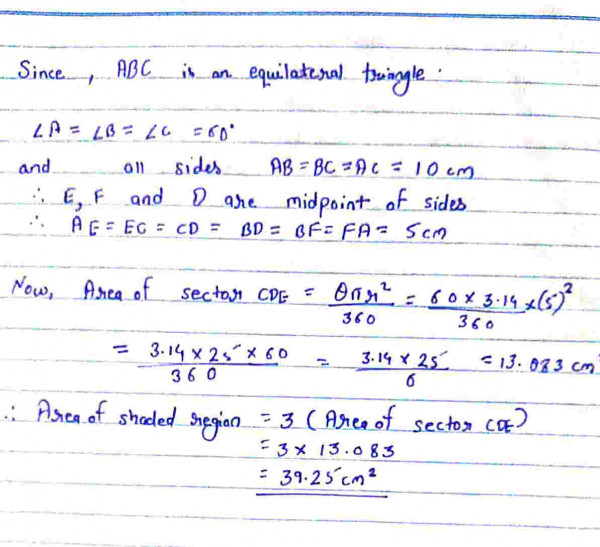 Since, ABC is an equilateral triangle.
∠A = ∠B = ∠C = 60°
and all sides AB = BC = AC = 10 cm
∴ E, F and D are midpoint of sides
∴ AE = EC = CD = BD = BF = FA = 5cm
Now, Area of sector CDE = θπr²/360 = 60 × 3.14 × (5)²/360
= 3.14 × 25 × 60/360 = 3.14 × 25/6 = 13.083 cm
∴ Area of shaded region = 3 (Area of sector CDE)
= 3 × 13.083
= 39.25 cm²